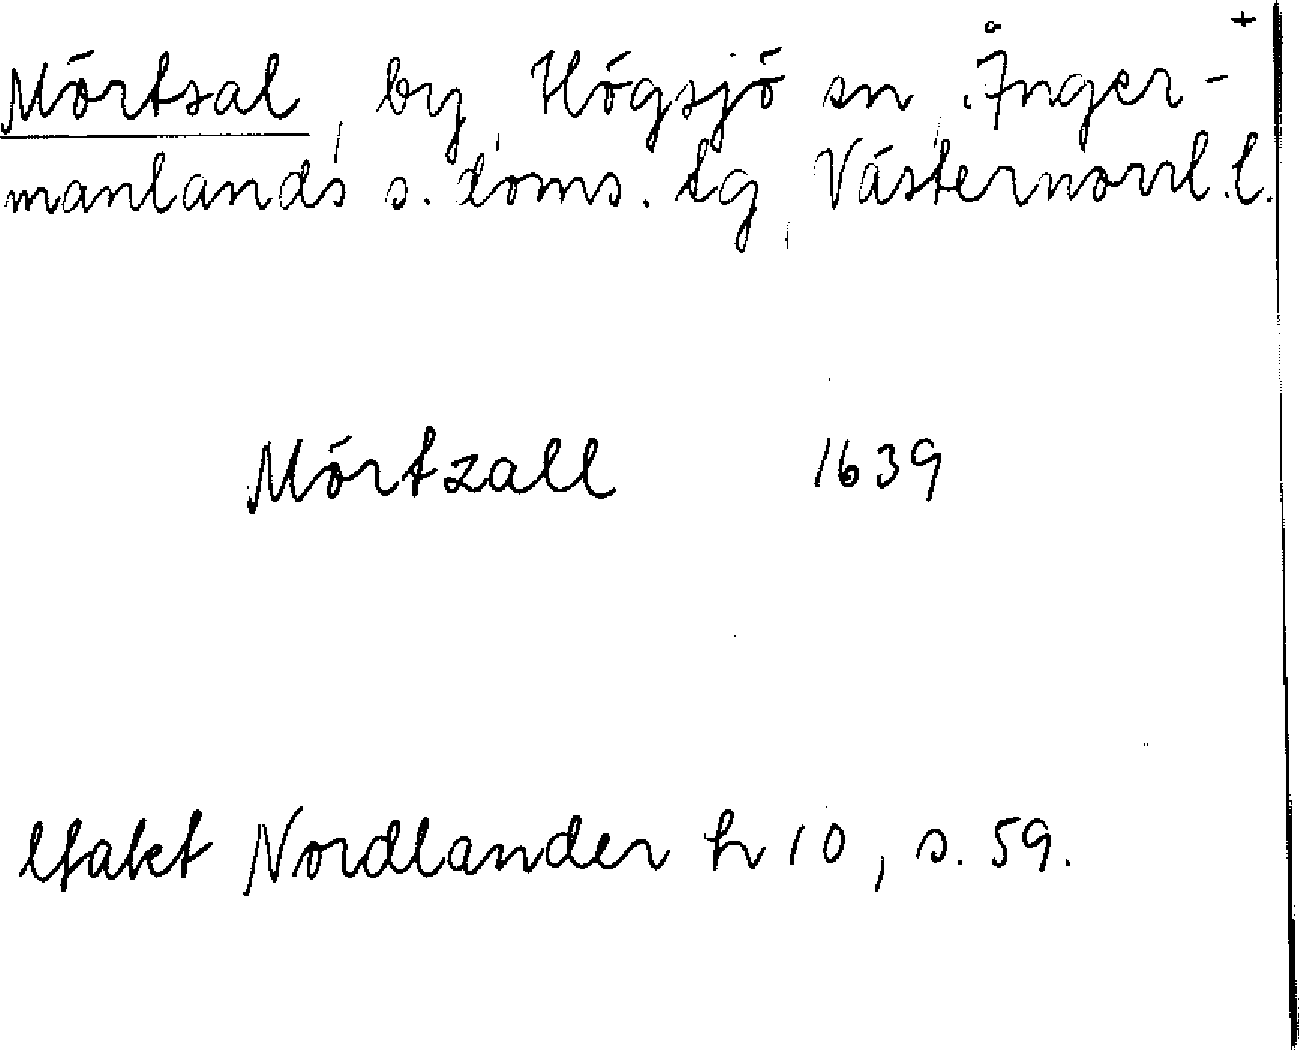 +
Mörtsal, by, Högsjö sn, Ånger-
manlands s. doms. tg, Västernorrl. l.
Mörtzall 1639
Nordlander h 10, s. 59.